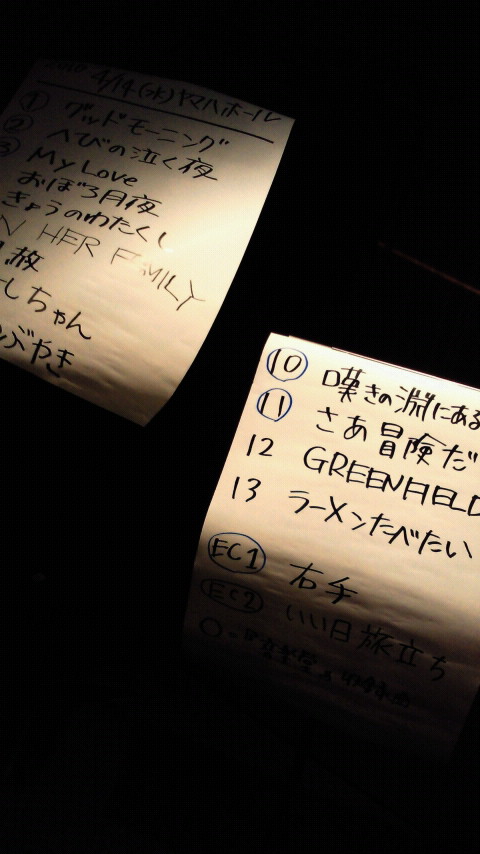 4/14(水) ヤマハホール
① グッドモーニング
② へびの泣く夜
③ My Love
おぼろ月夜
きょうのわたくし
N HER FAMILY
赦
しちゃん
ぶやき
⑩ 嘆きの淵にある
⑪ さあ冒険だ
12 GREENFIELD
13 ラーメンたべたい
EC1 右手
EC2 いい日旅立ち